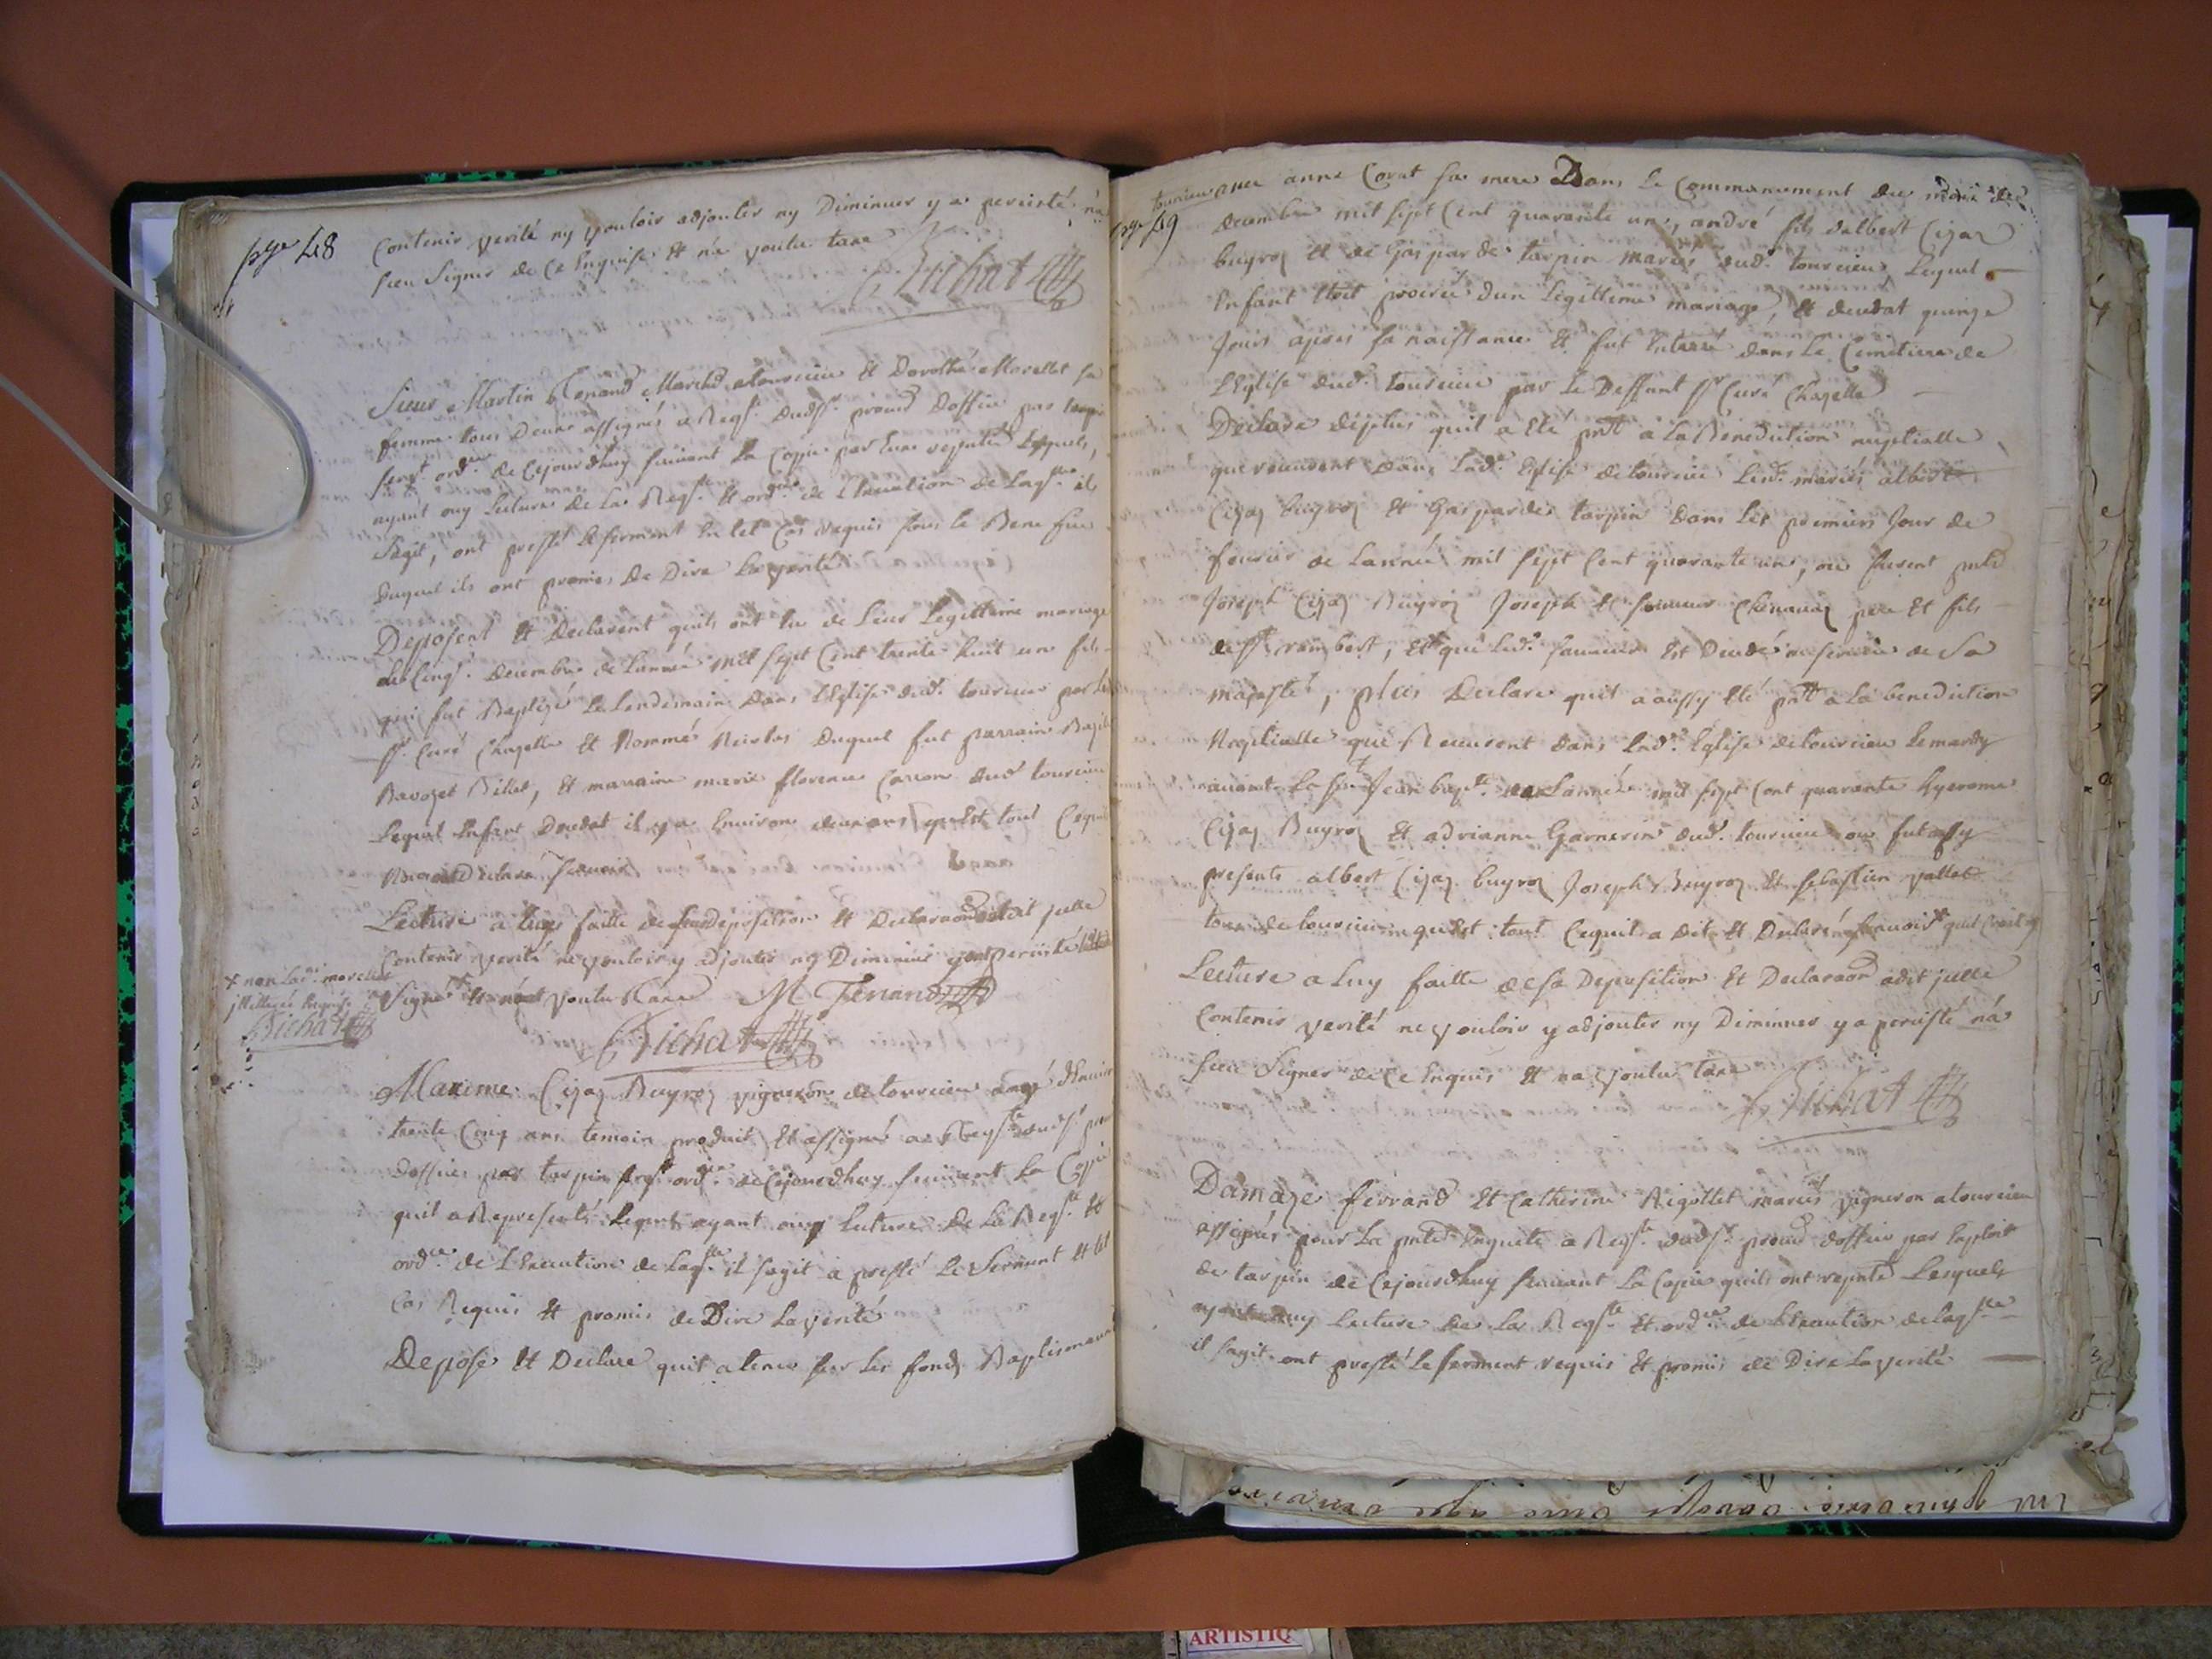 pge 48
Contenir verité ny vouloir adjouter ny Diminuer y a percisté na
sceu Signer de ce Enquise et na voulu taxe
Bichat
Sieur Martin Ferrand Marchd a tourcieu Et Dorothé Morellet sa
femme tous Deux assignés a Reqte. dudsr. procur Doffice par tarpin
sergt ordre. de Cejourdhuy suivant la Copie par Eux reputée Lesquels,
ayant ouy Lecture de La Reqte. Et ordce. de L'Execution de Laqte. il
Sagit, ont presté Le serment En tel Cas requis sous le Bene fice
Duquel ils ont promis De Dire La verité
Deposent Et Declarent quils ont Eu de Leur Legittime mariage
le Cinqe. Decembre de Lannée Mil sept Cent trente huit un fils
qui fut Baptizé Le Lendemain Dans L'Eglise dud. tourcieu par le
sr. Curé Chazelle Et Nommé Nicolas Duquel fut parrain
Bavozet Billet, Et marraine marie florence Carron dud tourcieu
Lequel Enfant Deceda il y a Environ deux ans quest tout Cequils
ont Declaré scavoir
Lecture a Eux faitte de leur deposition Et Declaraon ont dit jcelle
Contenir verité ne vouloir y adjouter ny Diminuer y ont percisté Et
Signé Et nont voulu taxe M Ferrand
+ non lad. morellet
jllitterée Enquise
Bichat
Bichat
Maxime Cizaz Buyroz vigneron de tourcieu aagé d'Environ
trente Cinq ans temoin produit Et assigné a Reqte dudsr. procur
doffice par tarpin sergt ordre. de Cejourdhuy suivant La Coppie
quil a Representé Lequel ayant ouy Lecture De La Reqte. Et
ordce. de L'Execution de Laqte. il sagit a presté Le Serment Et tel
Cas Requis Et promis de Dire La verité
Depose Et Declare quil a tenu sur les fonds Baptismaux
pge 49
tourcieu avec anne Corat sa mere Dans le Commancement du mois de
decembre mil sept Cent quarante un, andré fils dalbert Cizaz
buyroz Et de Gasparde tarpin mariés dud. tourcieu Lequel
Enfant Etoit procréé dun Legittime mariage, Et deceda quinze
Jours apres sa naissance Et fut Enterré dans Le Cimetiere de
L'Eglise dud. tourcieu par le Deffunt sr Curé Chazelle
Declare deplus quil a Eté pnt a La Benediction nuptialle
que receurent dans Lade. Eglise de tourcieu Lesd. mariés albert
Cizaz buyroz Et Gasparde tarpin Dans Les premiers Jour de
fevrier de Lannée mil sept Cent quarante un, ou furent pnts
Joseph Cizaz Buyroz Joseph Et Chenavaz pere Et fils
de st rambert, Et que Led. Est Decedé au service de Sa
majesté, plus Declare quil a aussy Eté pnt a La benediction
Nuptialle que Receurent dans Lade. Eglise de tourcieu Le mardy
avant La st Jean bapte. de Lannée mil sept Cent quarante hyerome
Cizaz Buyroz Et adrianne Garnerin dud. tourcieu ou fut assy
presents albert Cizaz buyroz Joseph Buyroz Et sebastien vallet
tous de tourcieu quest tout Cequil a Dit Et Declaré scavoir
Lecture a Luy faitte de sa Deposition Et Declaraon a dit jcelle
Contenir verité ne vouloir y adjouter ny Diminuer y a percisté na
sceu Signer de ce Enquis Et na voulu taxe
Bichat
Damaze ferrand Et Catherine Rigottet mariés vigneron a tourcieu
assignés pour La pnte Enquete a Reqte. dudsr. procur doffice par Exploit
de tarpin de Cejourdhuy suivant La Copie quils ont repnté Lesquels
ayant ouy Lecture De La Reqte. Et ordce. de L'Execution de Laqte
il sagit ont presté Le serment requis Et promis de Dire La verité
ARTISTIQ